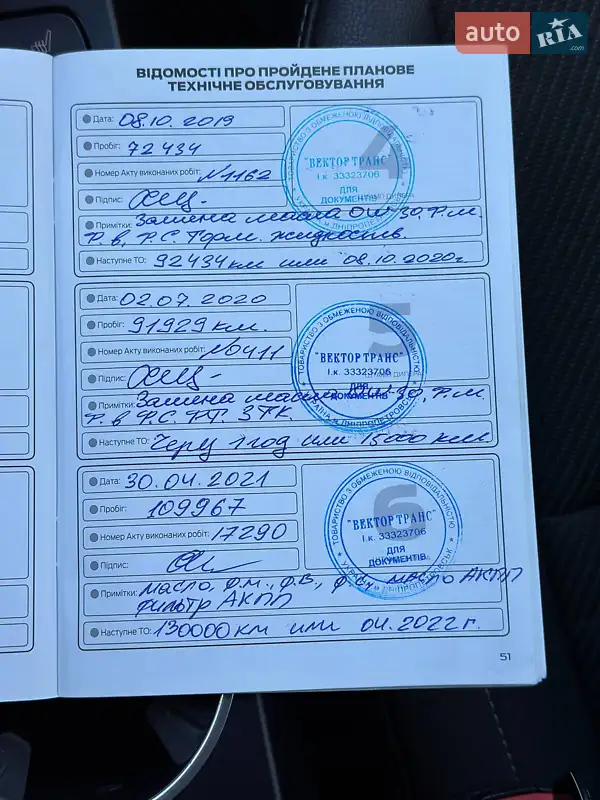 auto RIA .com
ВІДОМОСТІ ПРО ПРОЙДЕНЕ ПЛАНОВЕ
ТЕХНІЧНЕ ОБСЛУГОВУВАННЯ
Дата: 08.10.2019
Пробіг: 72434
Номер Акту виконаних робіт: N1162
Підпис:
4
ТОВАРИСТВО З ОБМЕЖЕНОЮ ВІДПОВІДАЛЬНІСТЮ
"ВЕКТОР ТРАНС"
І.к. 33323706
ДЛЯ
ДОКУМЕНТІВ
Примітки: Замена масла 0W30, Ф.м.
Ф.в, Ф.С. Торм. жидкость.
Наступне ТО: 92434 км или 08.10.2020г
Дата: 02.07.2020
Пробіг: 91929 км.
Номер Акту виконаних робіт: №0411
Підпис:
5
ТОВАРИСТВО З ОБМЕЖЕНОЮ ВІДПОВІДАЛЬНІСТЮ
"ВЕКТОР ТРАНС"
І.к. 33323706
ДЛЯ
ДОКУМЕНТІВ
Примітки: Замена масла 30, Ф.м.
Ф.в Ф.С. ФТ. ЗТК.
Наступне ТО: Через 1 год или 15000 км
Дата: 30.04.2021
Пробіг: 109967
Номер Акту виконаних робіт: 17290
Підпис:
6
ТОВАРИСТВО З ОБМЕЖЕНОЮ ВІДПОВІДАЛЬНІСТЮ
"ВЕКТОР ТРАНС"
І.к. 33323706
ДЛЯ
ДОКУМЕНТІВ
УКРАЇНА м.ДНІПРОПЕТРОВСЬК
Примітки: масло, ф.м., ф.в., масло АКПП
фильтр АКПП
Наступне ТО: 130000 км или 04.2022 г.
51